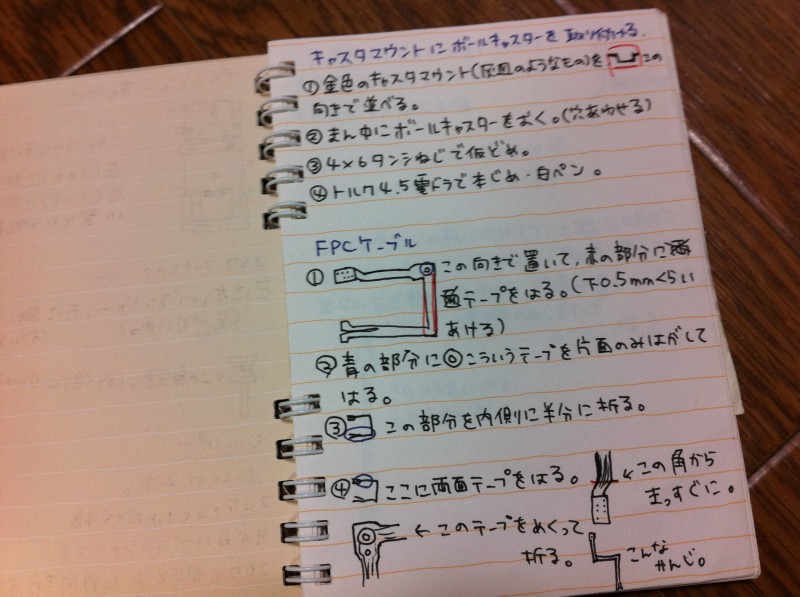 キャスタマウントにボールキャスターを取り付ける。
①金色のキャスタマウント(灰皿のようなもの)をこの
向きで並べる。
②まん中にボールキャスターをおく。(穴あわせる)
③4×6タンシねじで仮どめ。
④トルク4.5電ドラで本じめ・白ペン。
FPCケーブル
①この向きで置いて、赤の部分に両
面テープをはる。(下0.5mmくらい
あける)
②青の部分に◎こういうテープを片面のみはがして
はる。
③この部分を内側に半分に折る。
④ここに両面テープをはる。
←この角から
まっすぐに。
←このテープをめくって
折る。
こんな
かんじ。